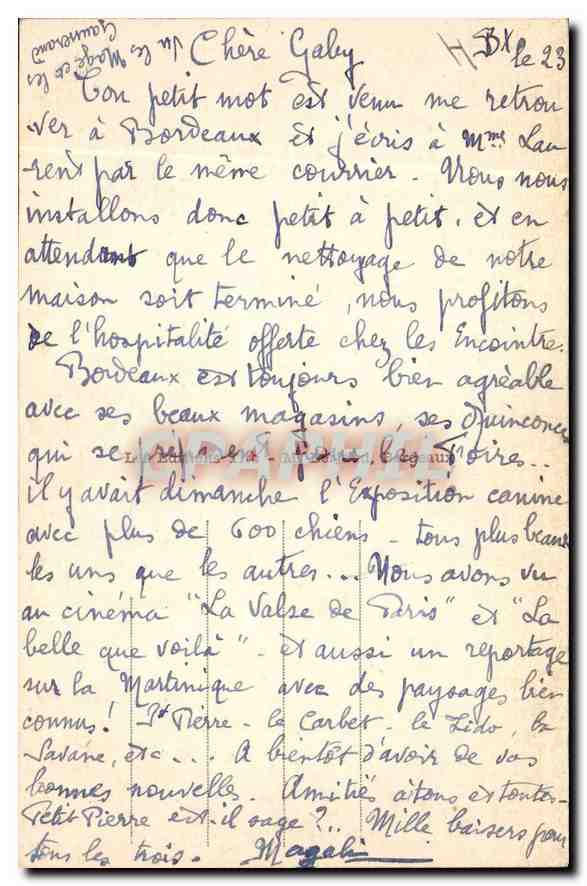 Bx le 23
Chère Gaby
Ton petit mot est venu me retrou
ver à Bordeaux et j'écris à Mme Lau
rent par le même courrier - Nous nous
installons donc petit à petit, et en
attendant que le nettoyage de notre
maison soit terminé, nous profitons
de l'hospitalité offerte chez les Encointre.
Bordeaux est toujours bien agréable
avec ses beaux magasins, ses Quinconces
qui se pour les Foires...
il y avait dimanche l'Exposition canine
avec plus de 600 chiens - tous plus beaux
les uns que les autres... Nous avons vu
au cinéma "La Valse de Paris" et "La
belle que voilà" - et aussi un reportage
sur la Martinique avec des paysages bien
connus! St Pierre - le Carbet - le Lido, la
Savane, etc... A bientôt d'avoir de vos
bonnes nouvelles. Amitiés à tous et toutes -
Petit Pierre est-il sage?... Mille baisers pour
tous les trois. Magali
vu les Magé et les
CPAPHIL
Les Editions